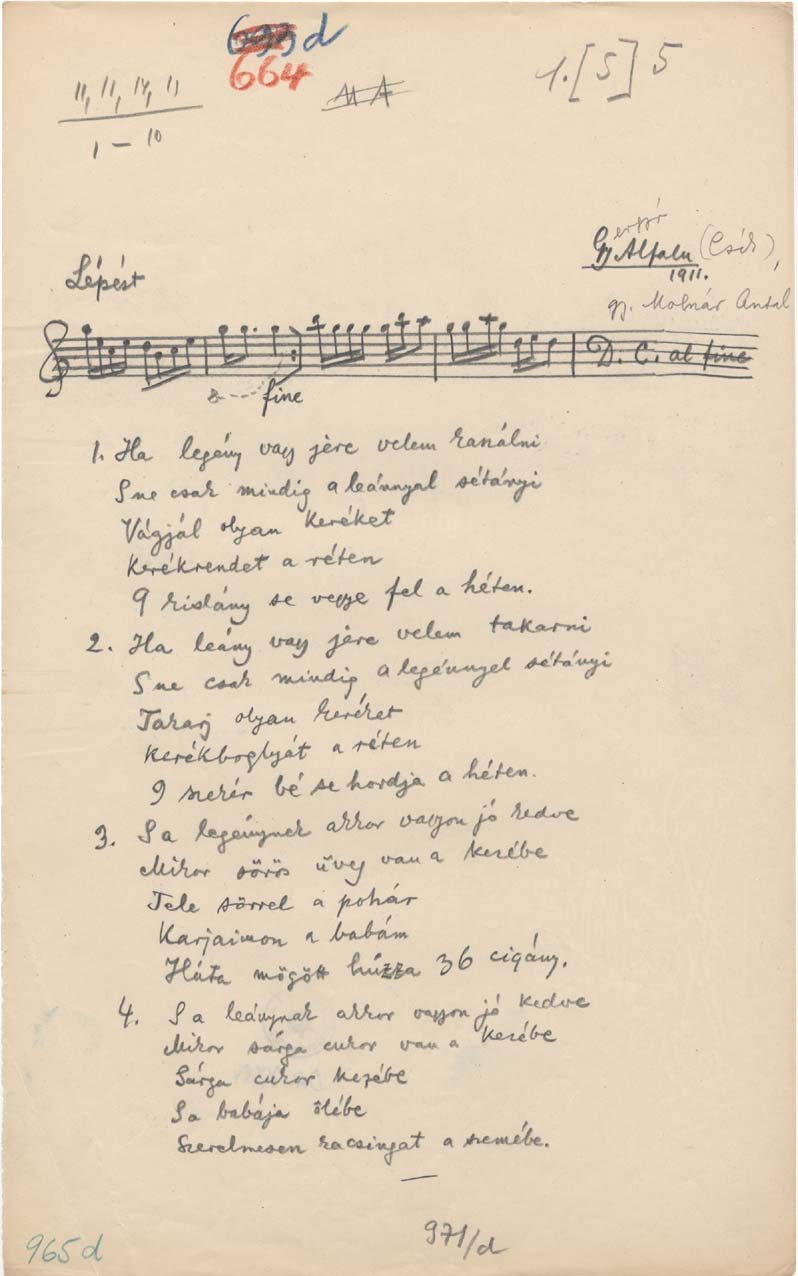 d
664
11, 11, 14, 11
1 – 10
1. [5] 5
Gyergyó
Alfalu (Csík),
1911.
gy. Molnár Antal
Lépést
fine
D. C. al fine
1. Ha legény vagy jère velem kaszálni
S ne csak mindig a leánnyal sétányi
Vágjál olyan keréket
Kerékrendet a réten
9 kislány se vegye fel a héten.
2. Ha leány vagy jère velem takarni
S ne csak mindig a legénnyel sétányi
Takarj olyan keréket
Kerékboglyát a réten
9 szekér bé se hordja a héten.
3. S a legénynek akkor vagyon jó kedve
Mikor sörös üveg van a kezébe
Tele sörrel a pohár
Karjaimon a babám
Háta mögött húzza 36 cigány.
4. S a leánynak akkor vagyon jó kedve
Mikor sárga cukor van a kezébe
Sárga cukor kezébe
S a babája ölébe
Szerelmesen kacsingat a szemébe.
971/d
965 d